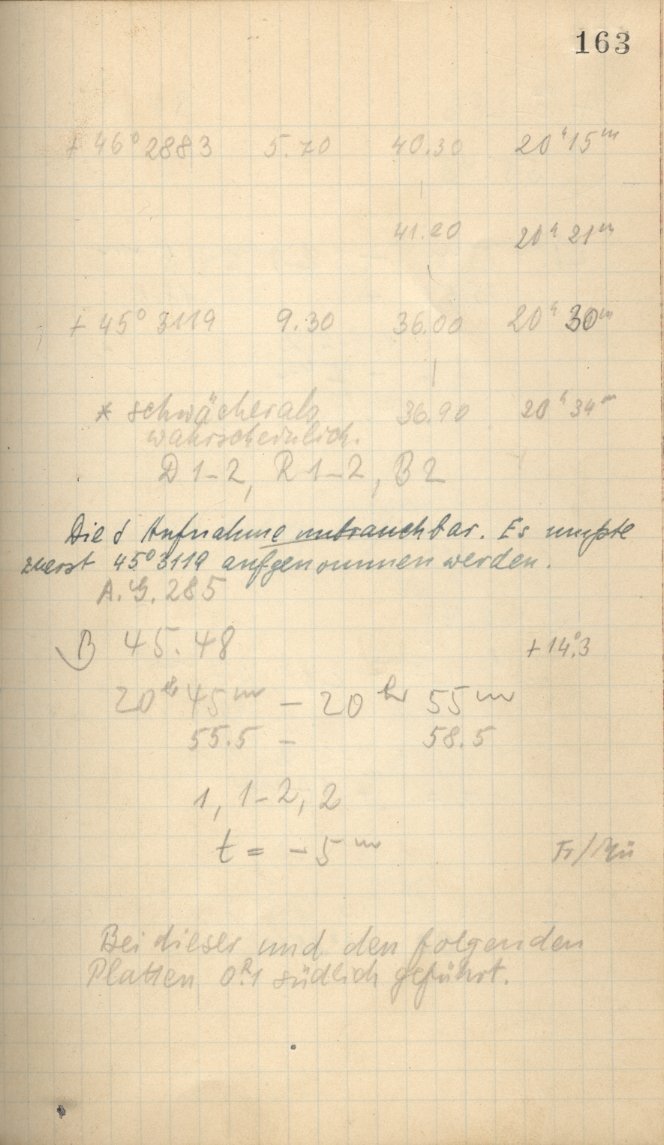 163
+ 46° 2883 5.70 40.30 20ʰ 15ᵐ
41.20 20ʰ 21ᵐ
+ 45° 3119 9.30 36.00 20ʰ 30ᵐ
* schwächer als 36.90 20ʰ 34ᵐ
wahrscheinlich.
D 1–2, R 1–2, B 2
Die Aufnahme unbrauchbar. Es mußte
zuerst 45° 3119 aufgenommen werden.
A.G. 285
B 45.48 + 14°.3
20ʰʳ 45ᵐ – 20ʰʳ 55ᵐ
55.5 – 58.5
1, 1–2, 2
t = – 5ᵐ
Bei dieser und den folgenden
Platten 0ᴿ.1 südlich geführt.